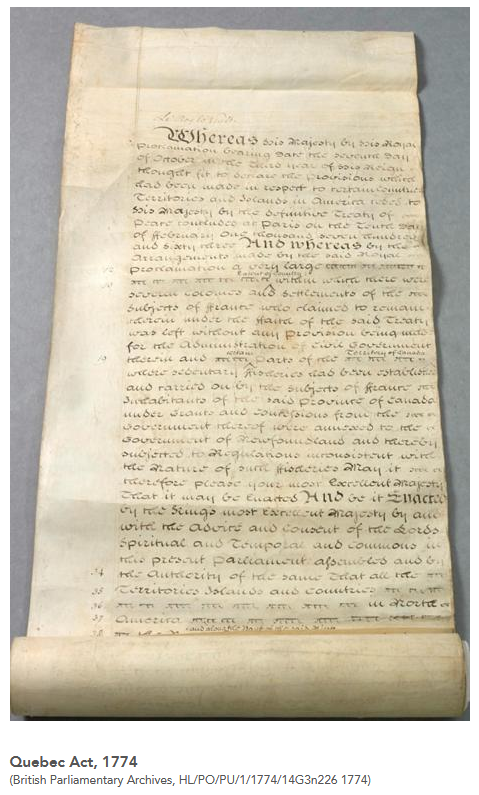 Whereas His Majesty by His Royal
Proclamation bearing Date the seventh Day
of October in the Third Year of His Reign
thought fit to declare the Provisions which
had been made in respect to certain Countries
Territories and Islands in America ceded to
His Majesty by the definitive Treaty of
Peace concluded at Paris on the Tenth Day
of February One thousand seven hundred
and sixty three And whereas by the
Arrangements made by the said Royal
Proclamation a very large
Extent of Country
within which there were
several Colonies and Settlements of the
Subjects of France who claimed to remain
therein under the Faith of the said Treaty
was left without any Provision being made
for the Administration of Civil Government
certain Territory of Canada
10 therein and Parts of the
where sedentary Fisheries had been established
and carried on by the Subjects of France
Inhabitants of the said Province of Canada
under Grants and Concessions from the
Government thereof were annexed to the
Government of Newfoundland and thereby
subjected to Regulations inconsistent with
the Nature of such Fisheries May it
therefore please your most Excellent Majesty
That it may be Enacted And be it Enacted
by the Kings most Excellent Majesty by and
with the Advice and Consent of the Lords
Spiritual and Temporal and Commons in
this present Parliament assembled and by
34 the Authority of the same That all the
35 Territories Islands and Countries
36 in North
37 America
Quebec Act, 1774
(British Parliamentary Archives, HL/PO/PU/1/1774/14G3n226 1774)